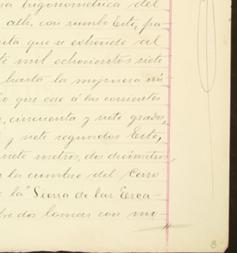 na trigonométrica del
allí, con rumbo Este, pa
nta que se estiende al
te mil ochocientos siete
hasta la mojonera
que cae á las corrientes
cincuenta y siete grados,
y siete segundos Este,
siete metros, dos decímetros
la cumbre del Cerro
la "Sierra de las Eresca-
bre dos lomas con mo-
8